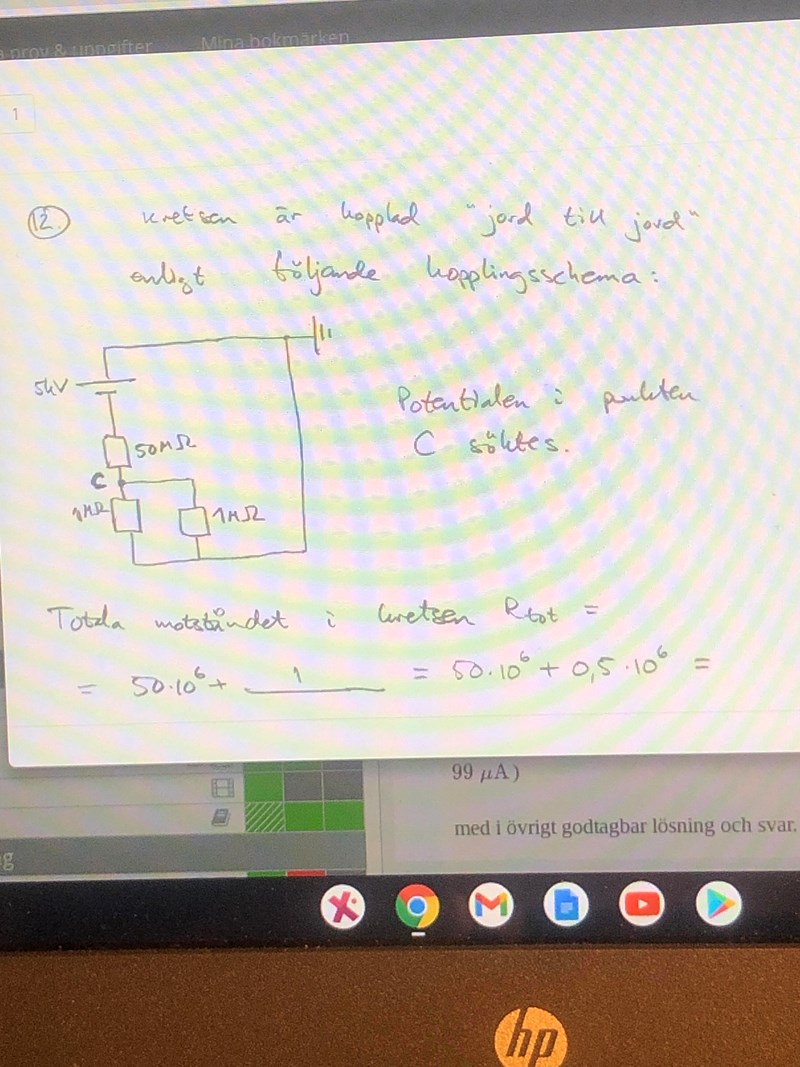 Mina bokmärken
1
12. Kretsen är kopplad "jord till jord"
enligt följande kopplingsschema:
5kV
50MΩ
Potentialen i punkten
C söktes.
C
1MΩ
1MΩ
Totala motståndet i kretsen Rtot =
= 50·10⁶ + 1 = 50·10⁶ + 0,5·10⁶ =
99 μA)
med i övrigt godtagbar lösning och svar.
g
hp